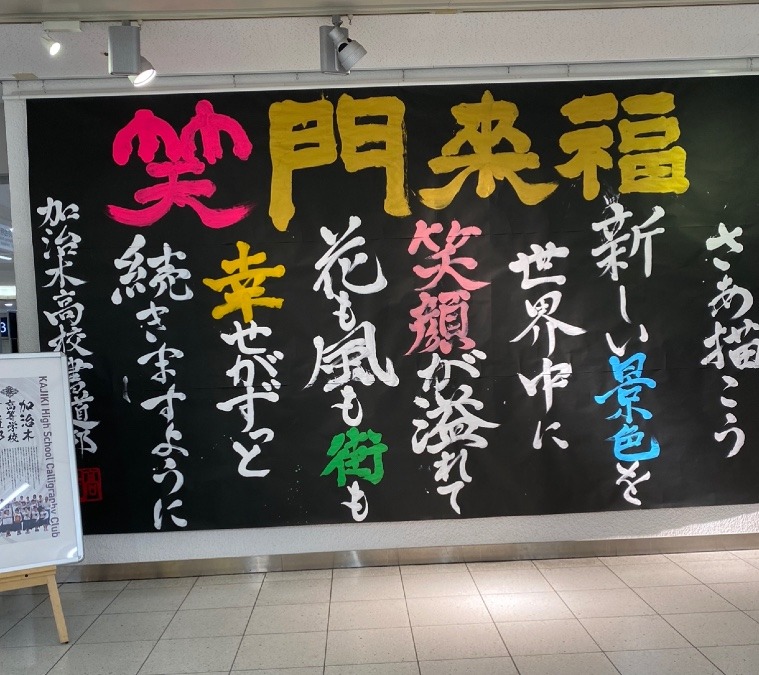 笑門来福
さあ描こう
新しい景色を
世界中に
笑顔が溢れて
花も風も街も
幸せがずっと
続きますように
加治木高校書道部
KAJIKI High School Calligraphy Club
加治木
高等学校
3